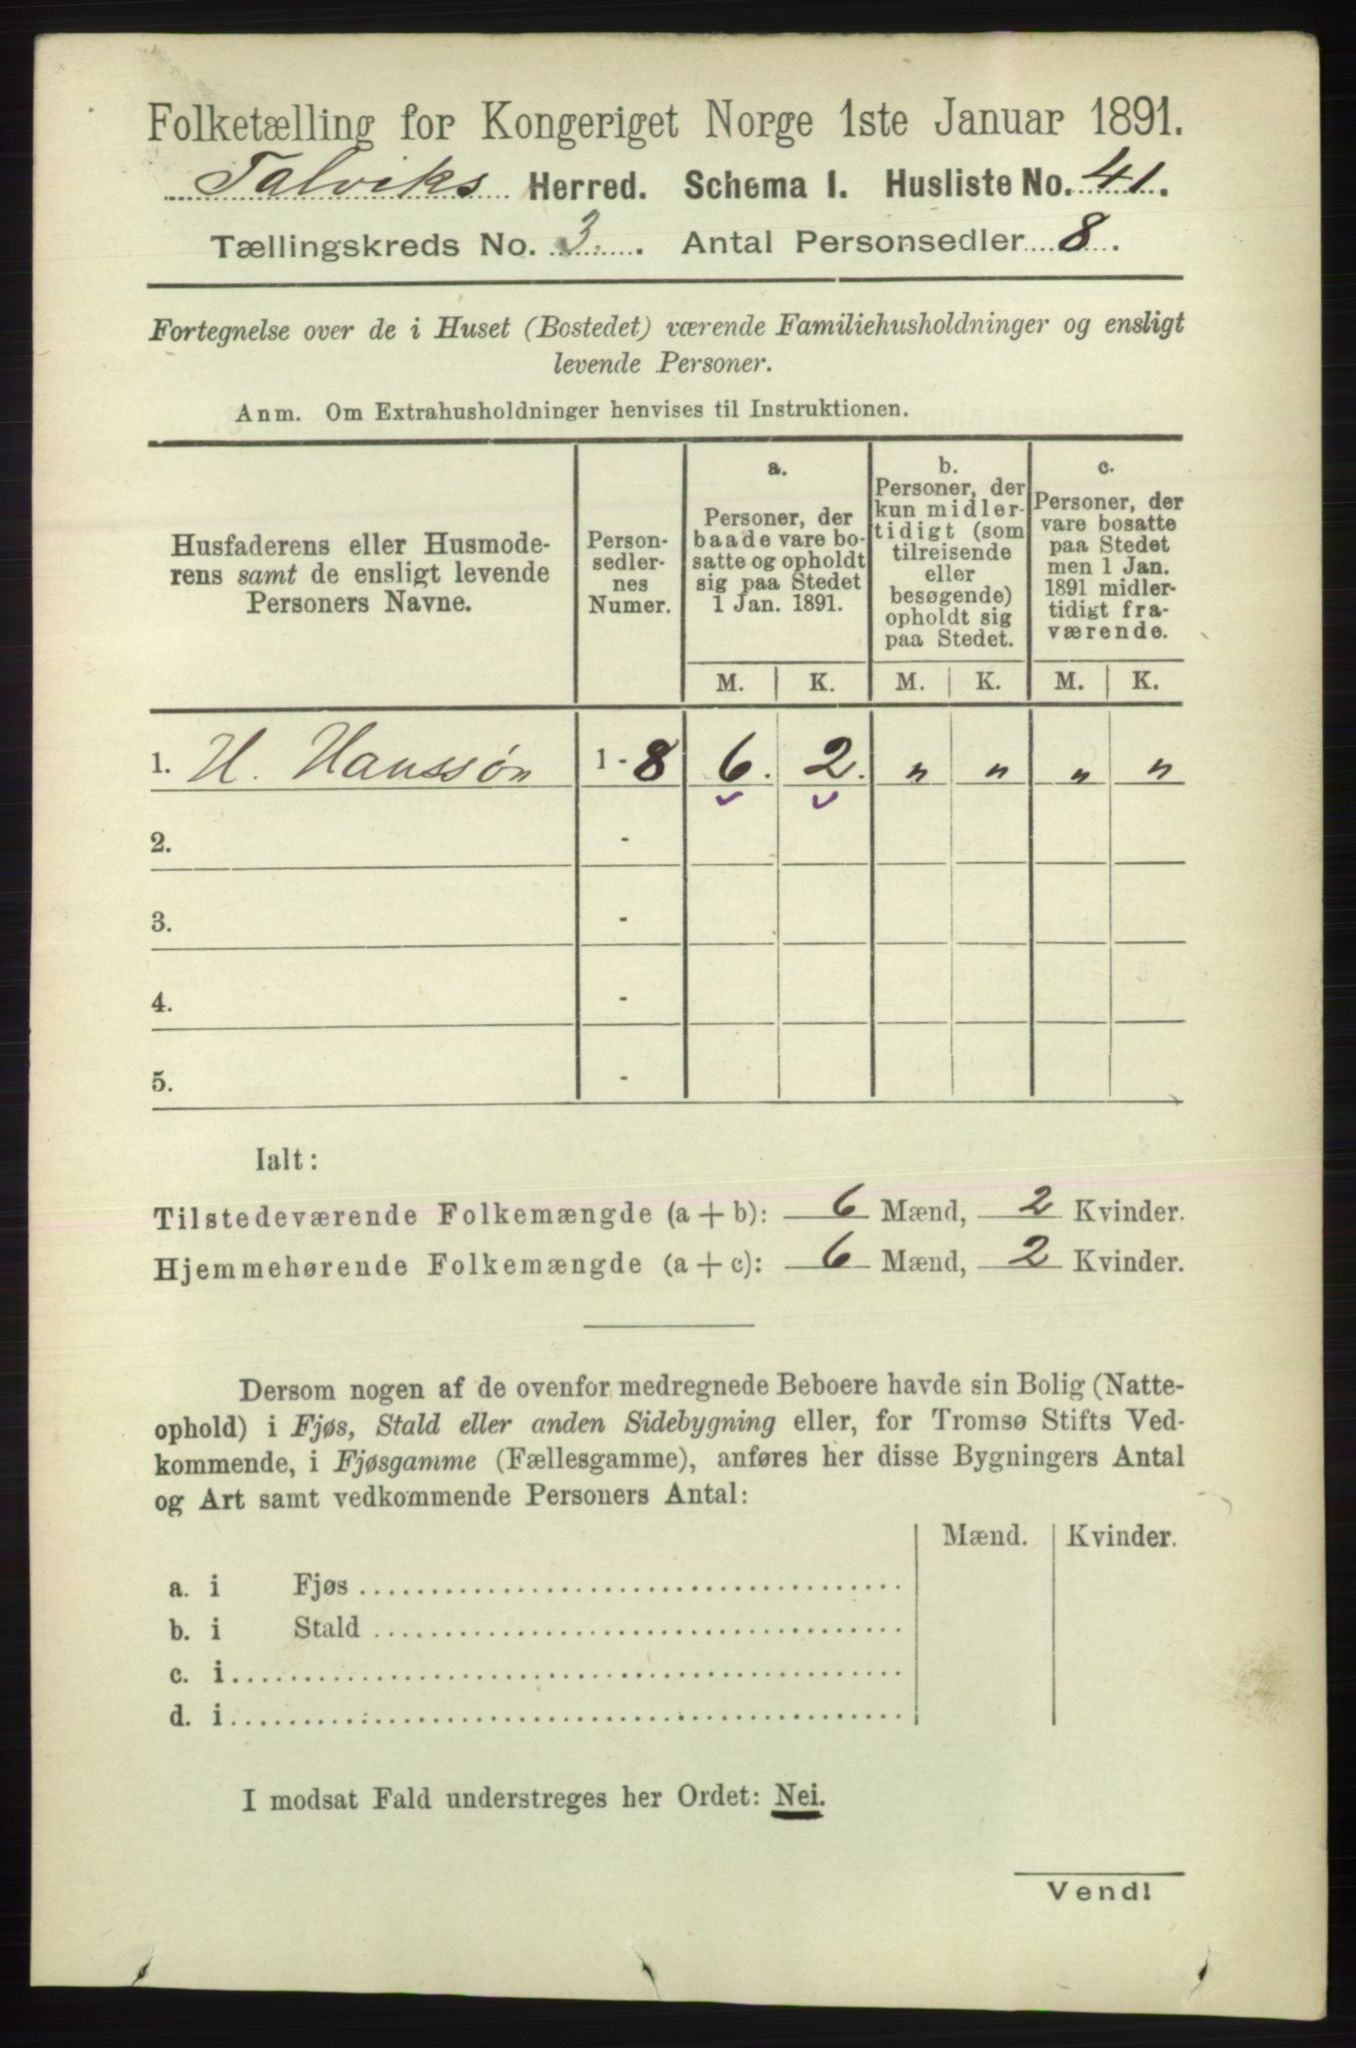 Folketælling for Kongeriget Norge 1ste Januar 1891.
Talviks Herred. Schema I. Husliste No. 41.
Tællingskreds No. 3. Antal Personsedler 8.
Fortegnelse over de i Huset (Bostedet) værende Familiehusholdninger og ensligt
levende Personer.
Anm. Om Extrahusholdninger henvises til Instruktionen.
Husfaderens eller Husmode-
rens samt de ensligt levende
Personers Navne.
Person-
sedler-
nes
Numer.
a.
Personer, der
baade vare bo-
satte og opholdt
sig paa Stedet
1 Jan. 1891.
b.
Personer, der
kun midler-
tidigt (som
tilreisende
eller
besøgende)
opholdt sig
paa Stedet.
c.
Personer, der
vare bosatte
paa Stedet
men 1 Jan.
1891 midler-
tidigt fra-
værende.
M. K. M. K. M. K.
1. H. Hanssøn 1 - 8 6. 2. " " " "
2. -
3. -
4. -
5. -
Ialt:
Tilstedeværende Folkemængde (a + b): 6 Mænd, 2 Kvinder.
Hjemmehørende Folkemængde (a + c): 6 Mænd, 2 Kvinder.
Dersom nogen af de ovenfor medregnede Beboere havde sin Bolig (Natte-
ophold) i Fjøs, Stald eller anden Sidebygning eller, for Tromsø Stifts Ved-
kommende, i Fjøsgamme (Fællesgamme), anføres her disse Bygningers Antal
og Art samt vedkommende Personers Antal:
Mænd. Kvinder.
a. i Fjøs
b. i Stald
c. i
d. i
I modsat Fald understreges her Ordet: Nei.
Vend!